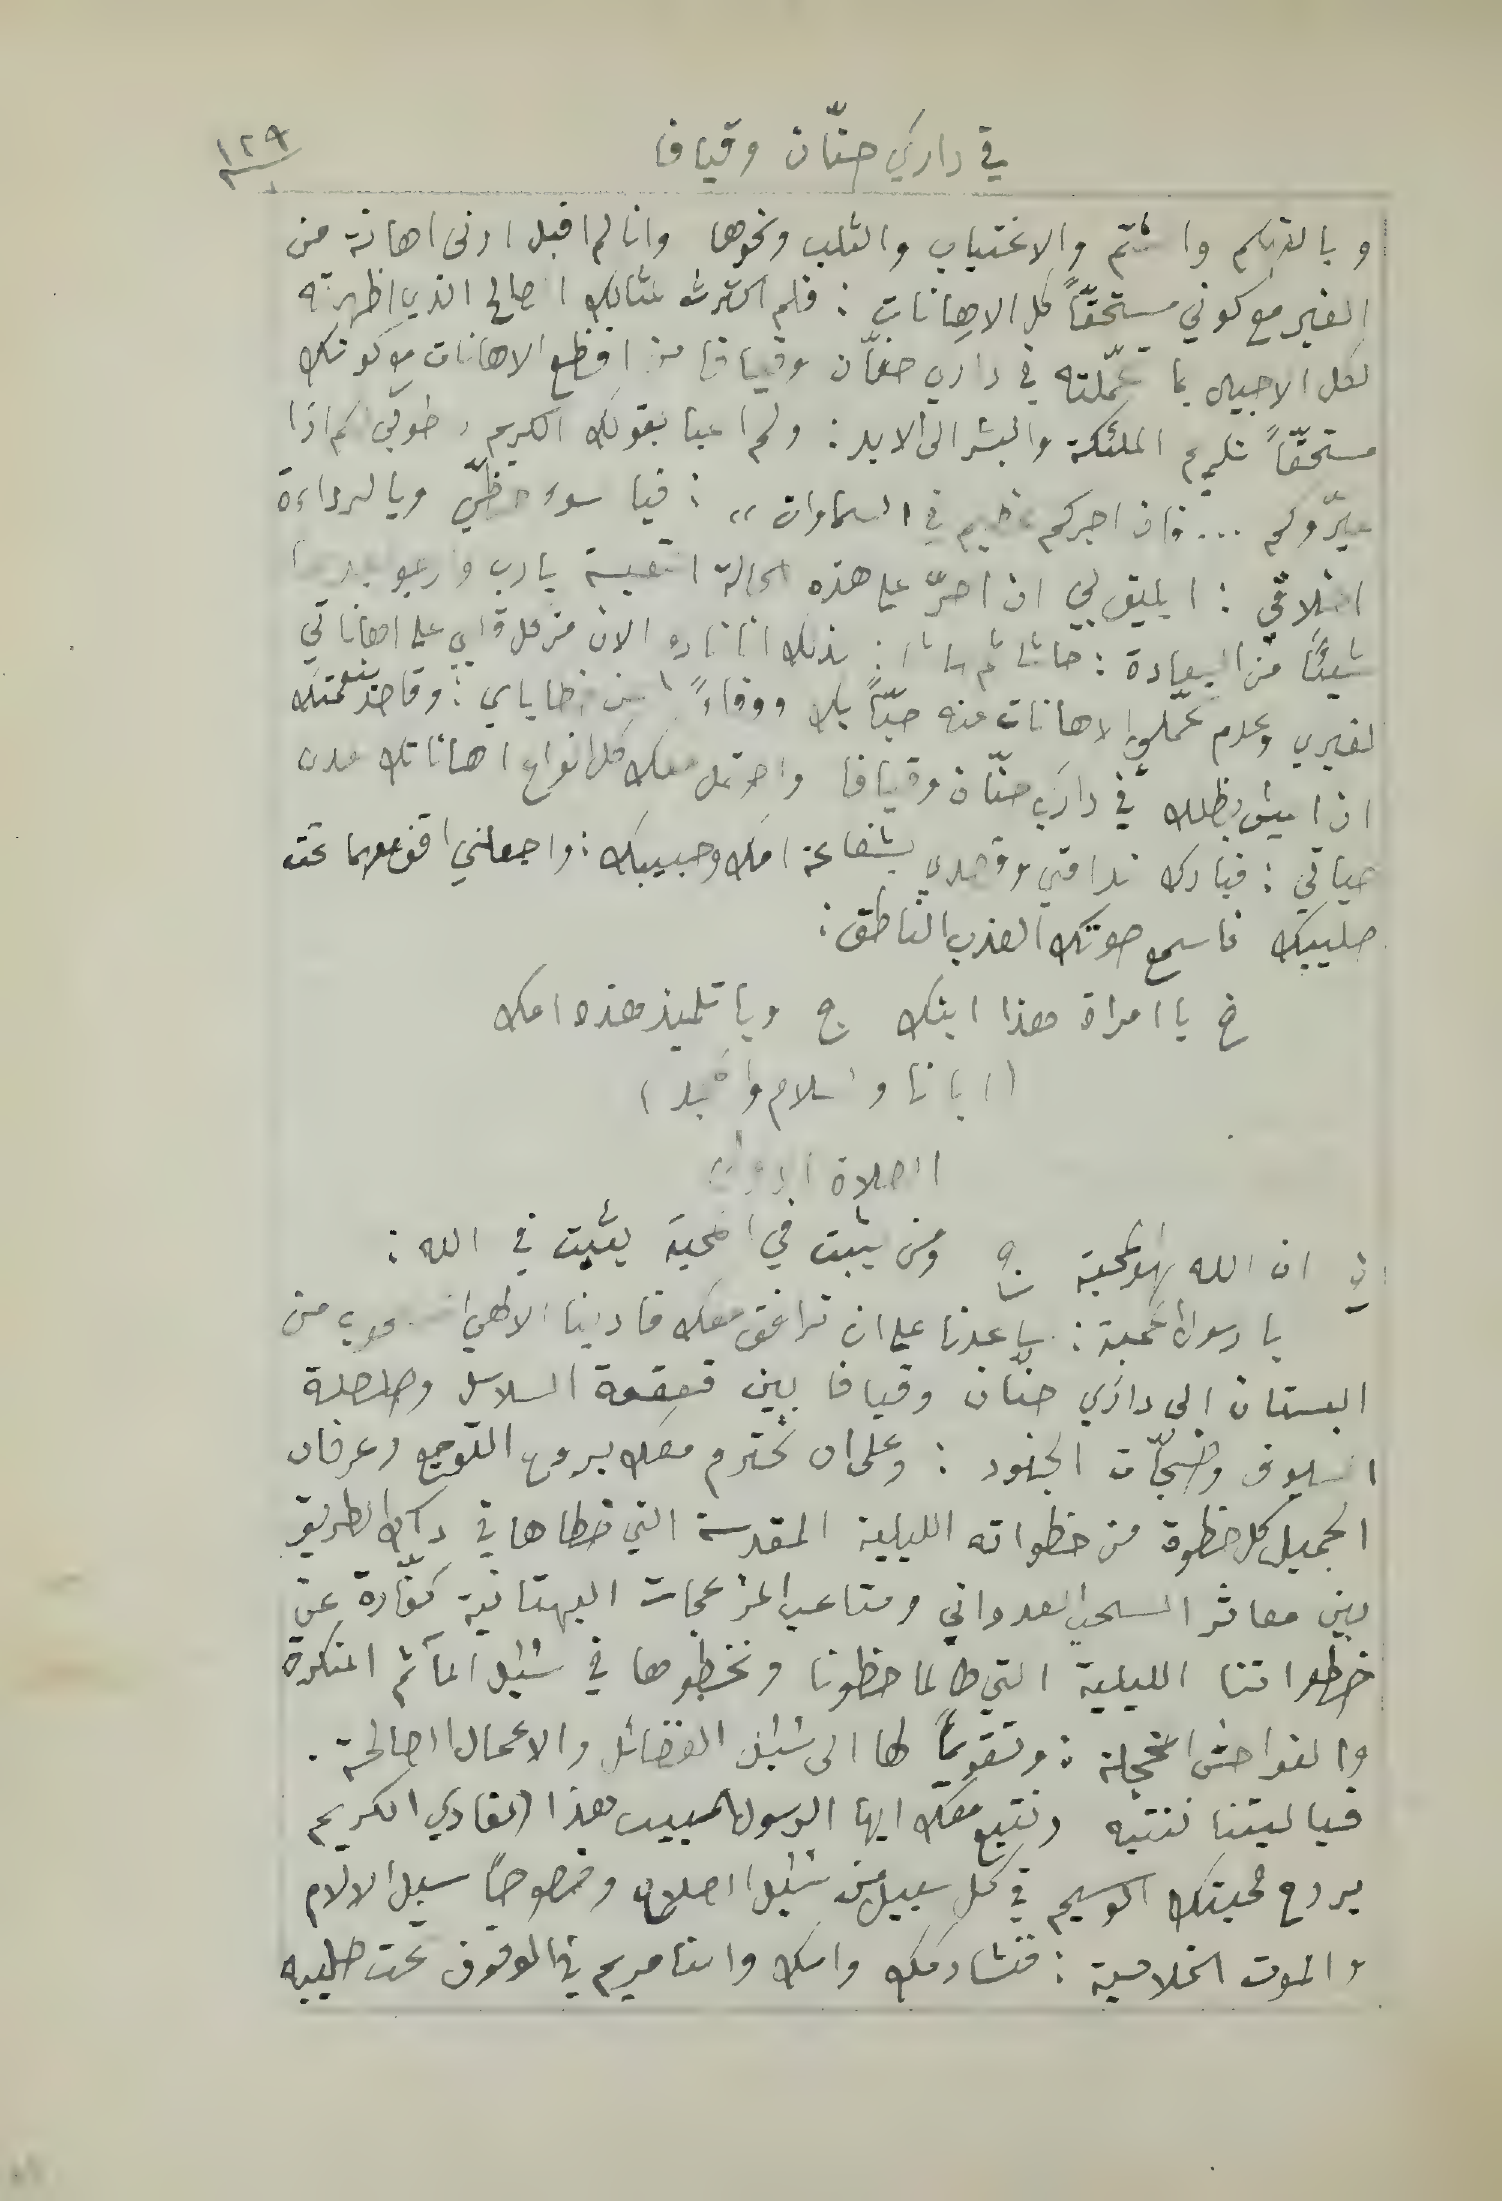 في داركي حنّان وقيافا
١٢٩
وبالتهكم والشتم والاغتياب والثلب ونحوها وانا لم اقبل ادنى اهانة من
الغير مع كوني مستحقاً كل الاهانات : فلم اكترث بمثالك الصالح الذي اظهرته
لكل الاجيال بما تحمّلته في داري حنّان وقيافا من افظع الاهانات مع كونك
مستحقّاً تكريم الملئكة والبشر الى الابد : ولم اعبا بقولك الكريم طوبى لكم اذا
عيّروكم ... فان اجركم عظيم في السماوات ،، : فيا سوء حظّي ويا لرداءة
اخلاقي : ايليق بي ان اصرّ على هذه الحالة التعيسة يا رب وارجو
شيئًا من السعادة : حاشا ثم حاشا : لذلك انا نادم الان من كل قلبي على اهاناتي
لغيري وعدم تحمّلي الاهانات منه حبّاً بك ووفاءً عن خطاياي : وقاصد بنعمتك
ان اعيش بظلك في داري حنّان وقيافا واحتمل معك كل انواع اهاناتك مدى
حياتي : فبارك ندامتي وقصدي بشفاعة امك وحبيبك : واجعلني اقف معهما تحت
صليبك فاسمع صوتك العذب الناطق :
خ يا امراة هذا ابنك ج ويا تلميذ هذه امك
(ابانا والسلام والمجد)
الصلاة
ان الله هو المحبة ومن يثبت في المحبة يثبت في الله :
يا رسول المحبة : ساعدنا على ان نرافق معك فادينا الالهي من
البستان الى داري حنّان وقيافا بين قعقعة السلاسل وصلصلة
السيوف وضجّات الجنود : وعلى ان نحترم معك بروح التوجع وعرفان
الجميل كل خطوة من خطواته الليلية المقدسة التي خطاها في ذلك الطريق
بين معاثر السحب العدواني ومتاعب المزعجات البهتانية كفّارة عن
خطواتنا الليلية التي طالما خطونا ونخطوها في سُبُل المآثم المنكرة
والفواحش المخجلة : وتقويمًا لها الى سُبُل الفضائل والاعمال الصالحة .
فيا ليتنا ننتبه ونتبع معك ايها الرسول الحبيب هذا الفادي الكريم
بروح محبتك الوسيم في كل سبيل من سُبُل الصلاح وخصوصًا سبيل الالام
والموت الخلاصية : فنشاركك وامك وامنا مريم في الوقوف تحت صليبه